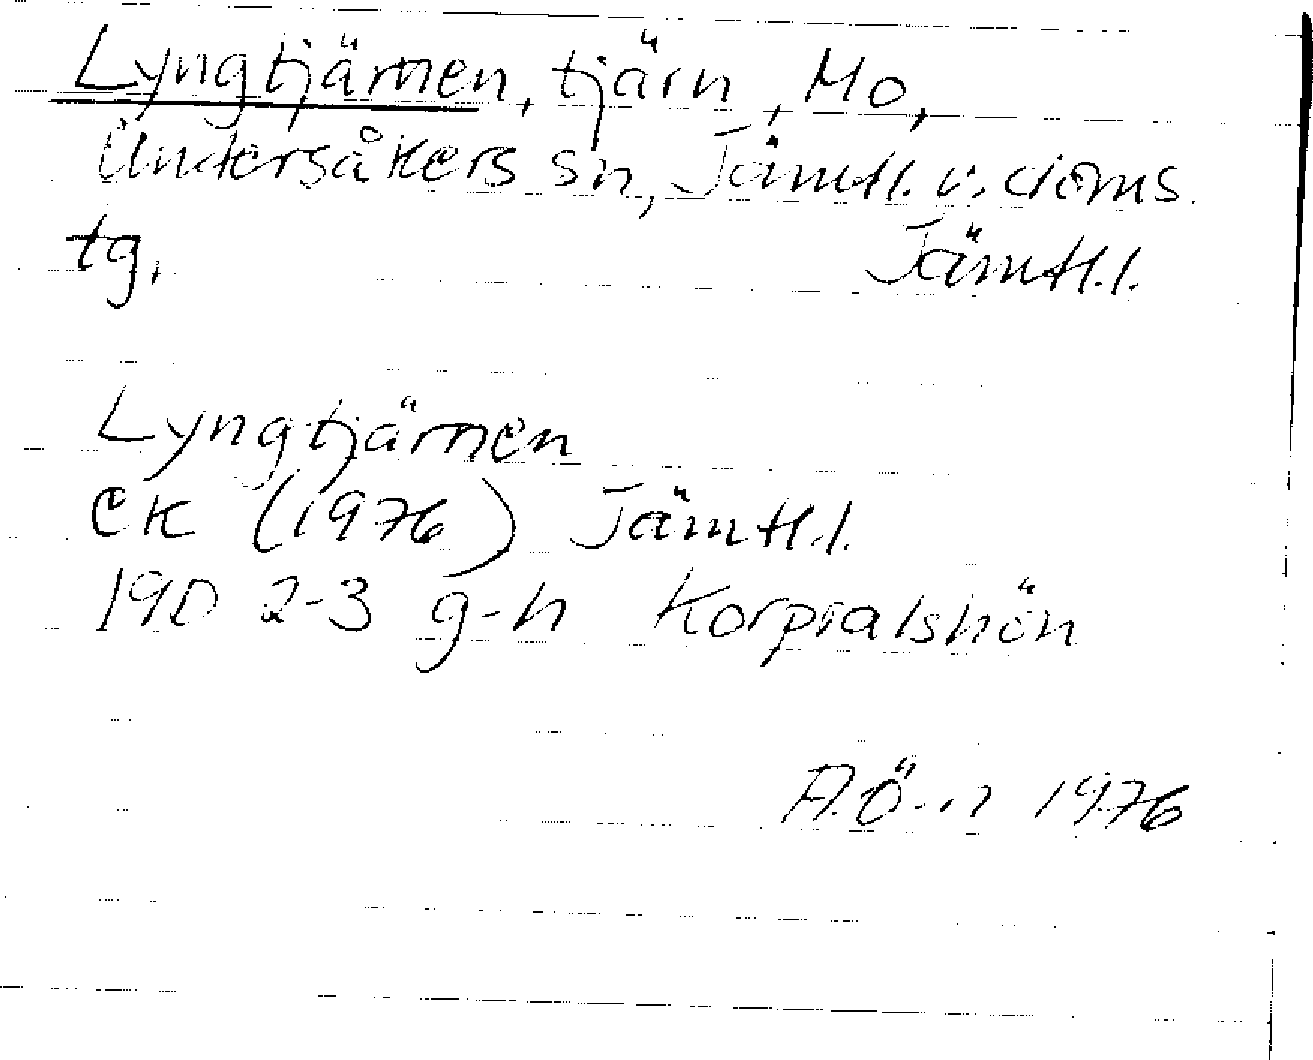 Lyngtjärnen, tjärn, Mo,
Undersåkers sn, Jämtl. v. doms.
tg, Jämtl.l.
Lyngtjärnen
EK (1976) Jämtl.l.
19D 2-3 g-h Korpralshön
A.Ö-n 1976